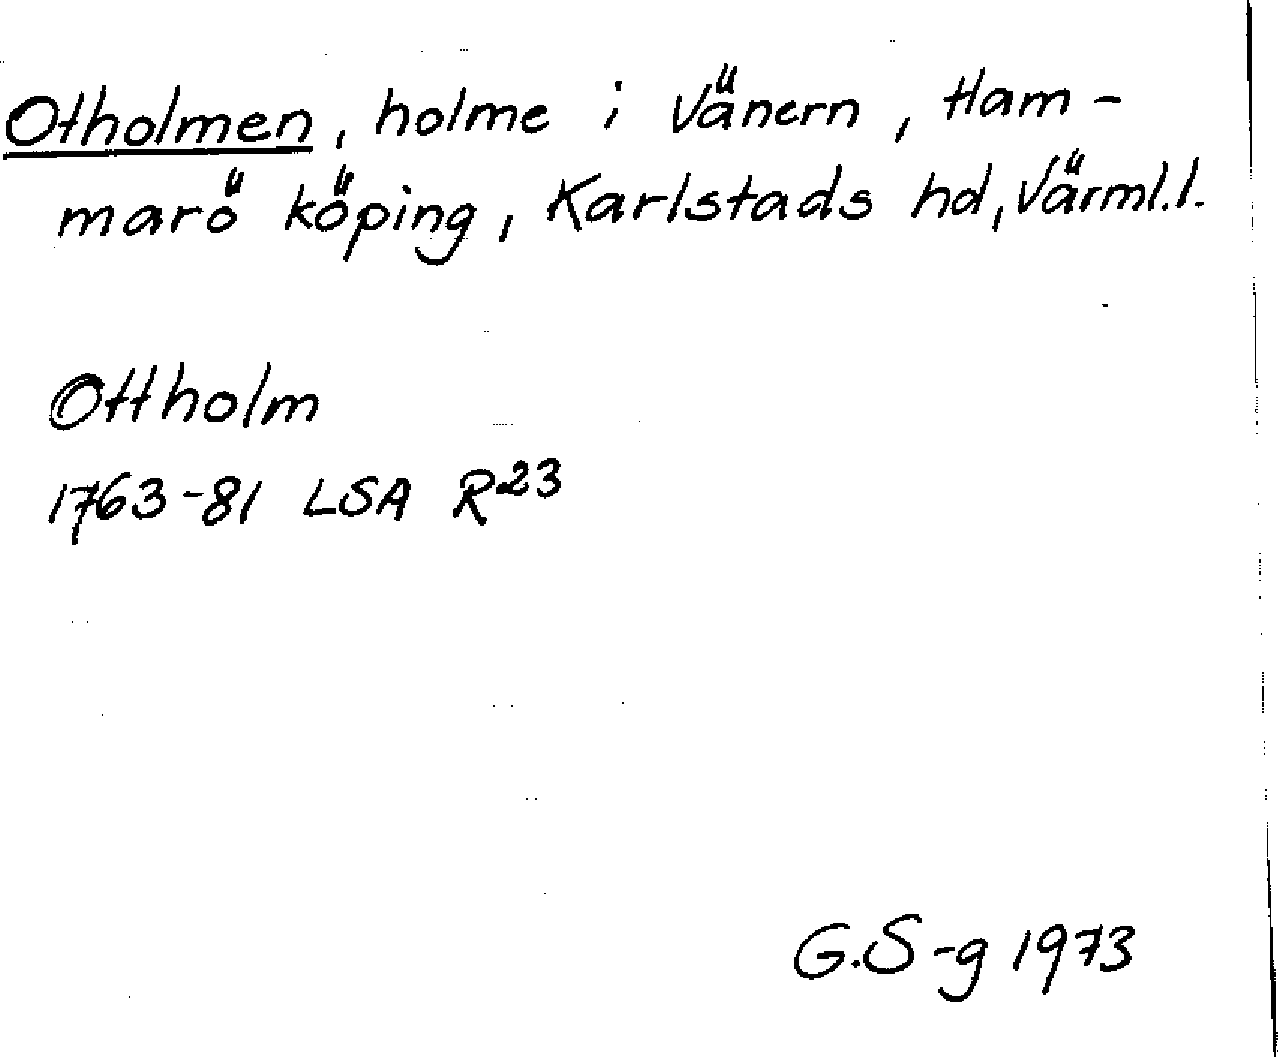 Otholmen, holme i Vänern, Ham-
marö köping, Karlstads hd, Värml.l.
Ottholm
1763-81 LSA R23
G.S-g 1973